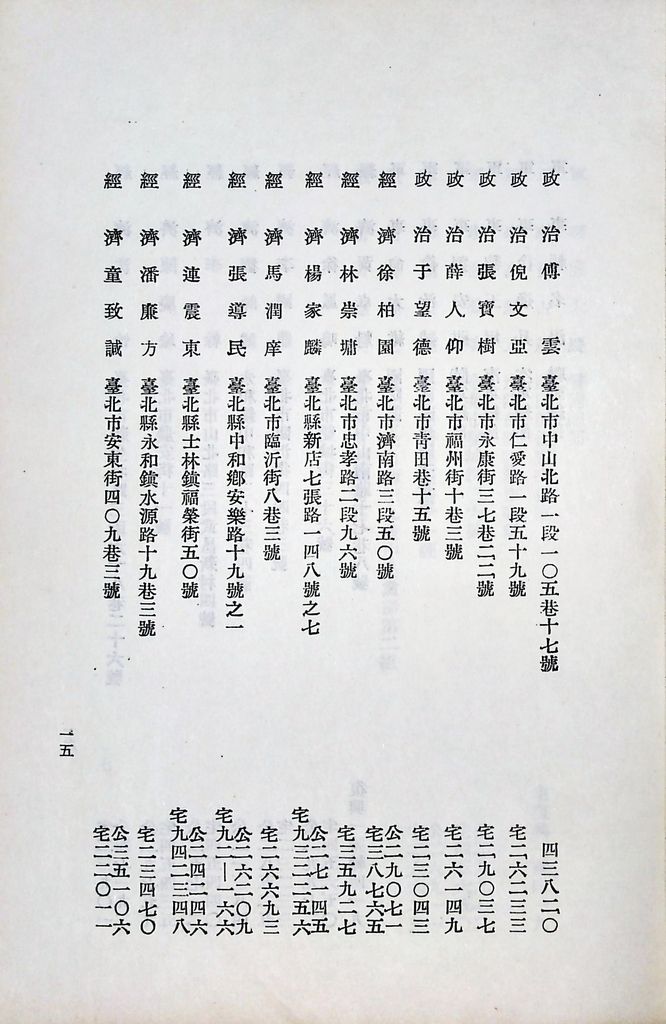 政治傅雲臺北市中山北路一段一〇五巷十七號 四三八二〇
政治倪文亞臺北市仁愛路一段五十九號 宅二六二三三
政治張寶樹臺北市永康街三七巷二二號 宅二九〇三七
政治薛人仰臺北市福州街十巷三號 宅二六一四九
政治于望德臺北市青田巷十五號 宅二三〇四三
經濟徐柏園臺北市濟南路三段五〇號 公二九〇七一
宅三八七六五
經濟林崇墉臺北市忠孝路二段九六號 宅三五九二七
經濟楊家麟臺北縣新店七張路一四八號之七 公二七一四五
宅九三二二五六
經濟馬潤庠臺北市臨沂街八巷三號 宅二六六九三
經濟張導民臺北縣中和鄉安樂路十九號之一 公二六二〇九
宅九二一一六六
經濟連震東臺北縣士林鎮福榮街五〇號 公二四二四六
宅九四二三四八
經濟潘廉方臺北縣永和鎮水源路十九巷三號 宅二三四七〇
經濟童致諴臺北市安東街四〇九巷三號 公三五一〇六
宅二二〇一一
一五